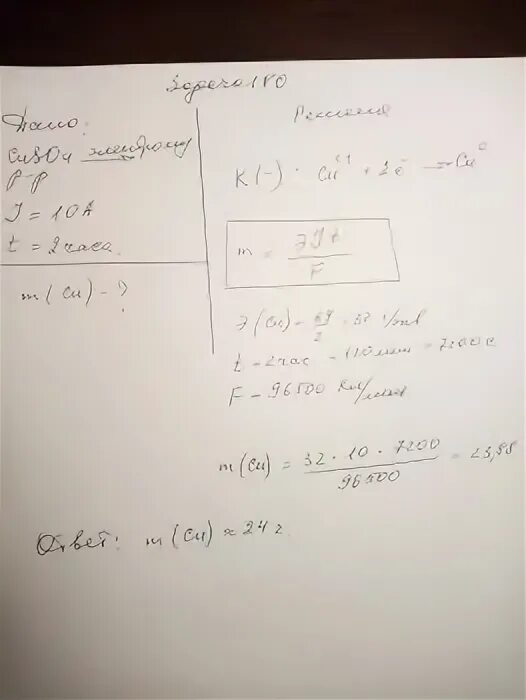 Задача 180
Дано:
CuSO4 электролиз
р-р
J = 10A
t = 2 часа
m(Cu) - ?
Решение
K(-) : Cu+2 + 2ē = Cu0
m = ЭJt / F
Э(Cu) = 64/2 = 32 г/моль
t = 2 час = 120 мин = 7200 с
F = 96500 Кл/моль
m(Cu) = 32 · 10 · 7200 / 96500 = 23,88
Ответ: m(Cu) ≈ 24 г